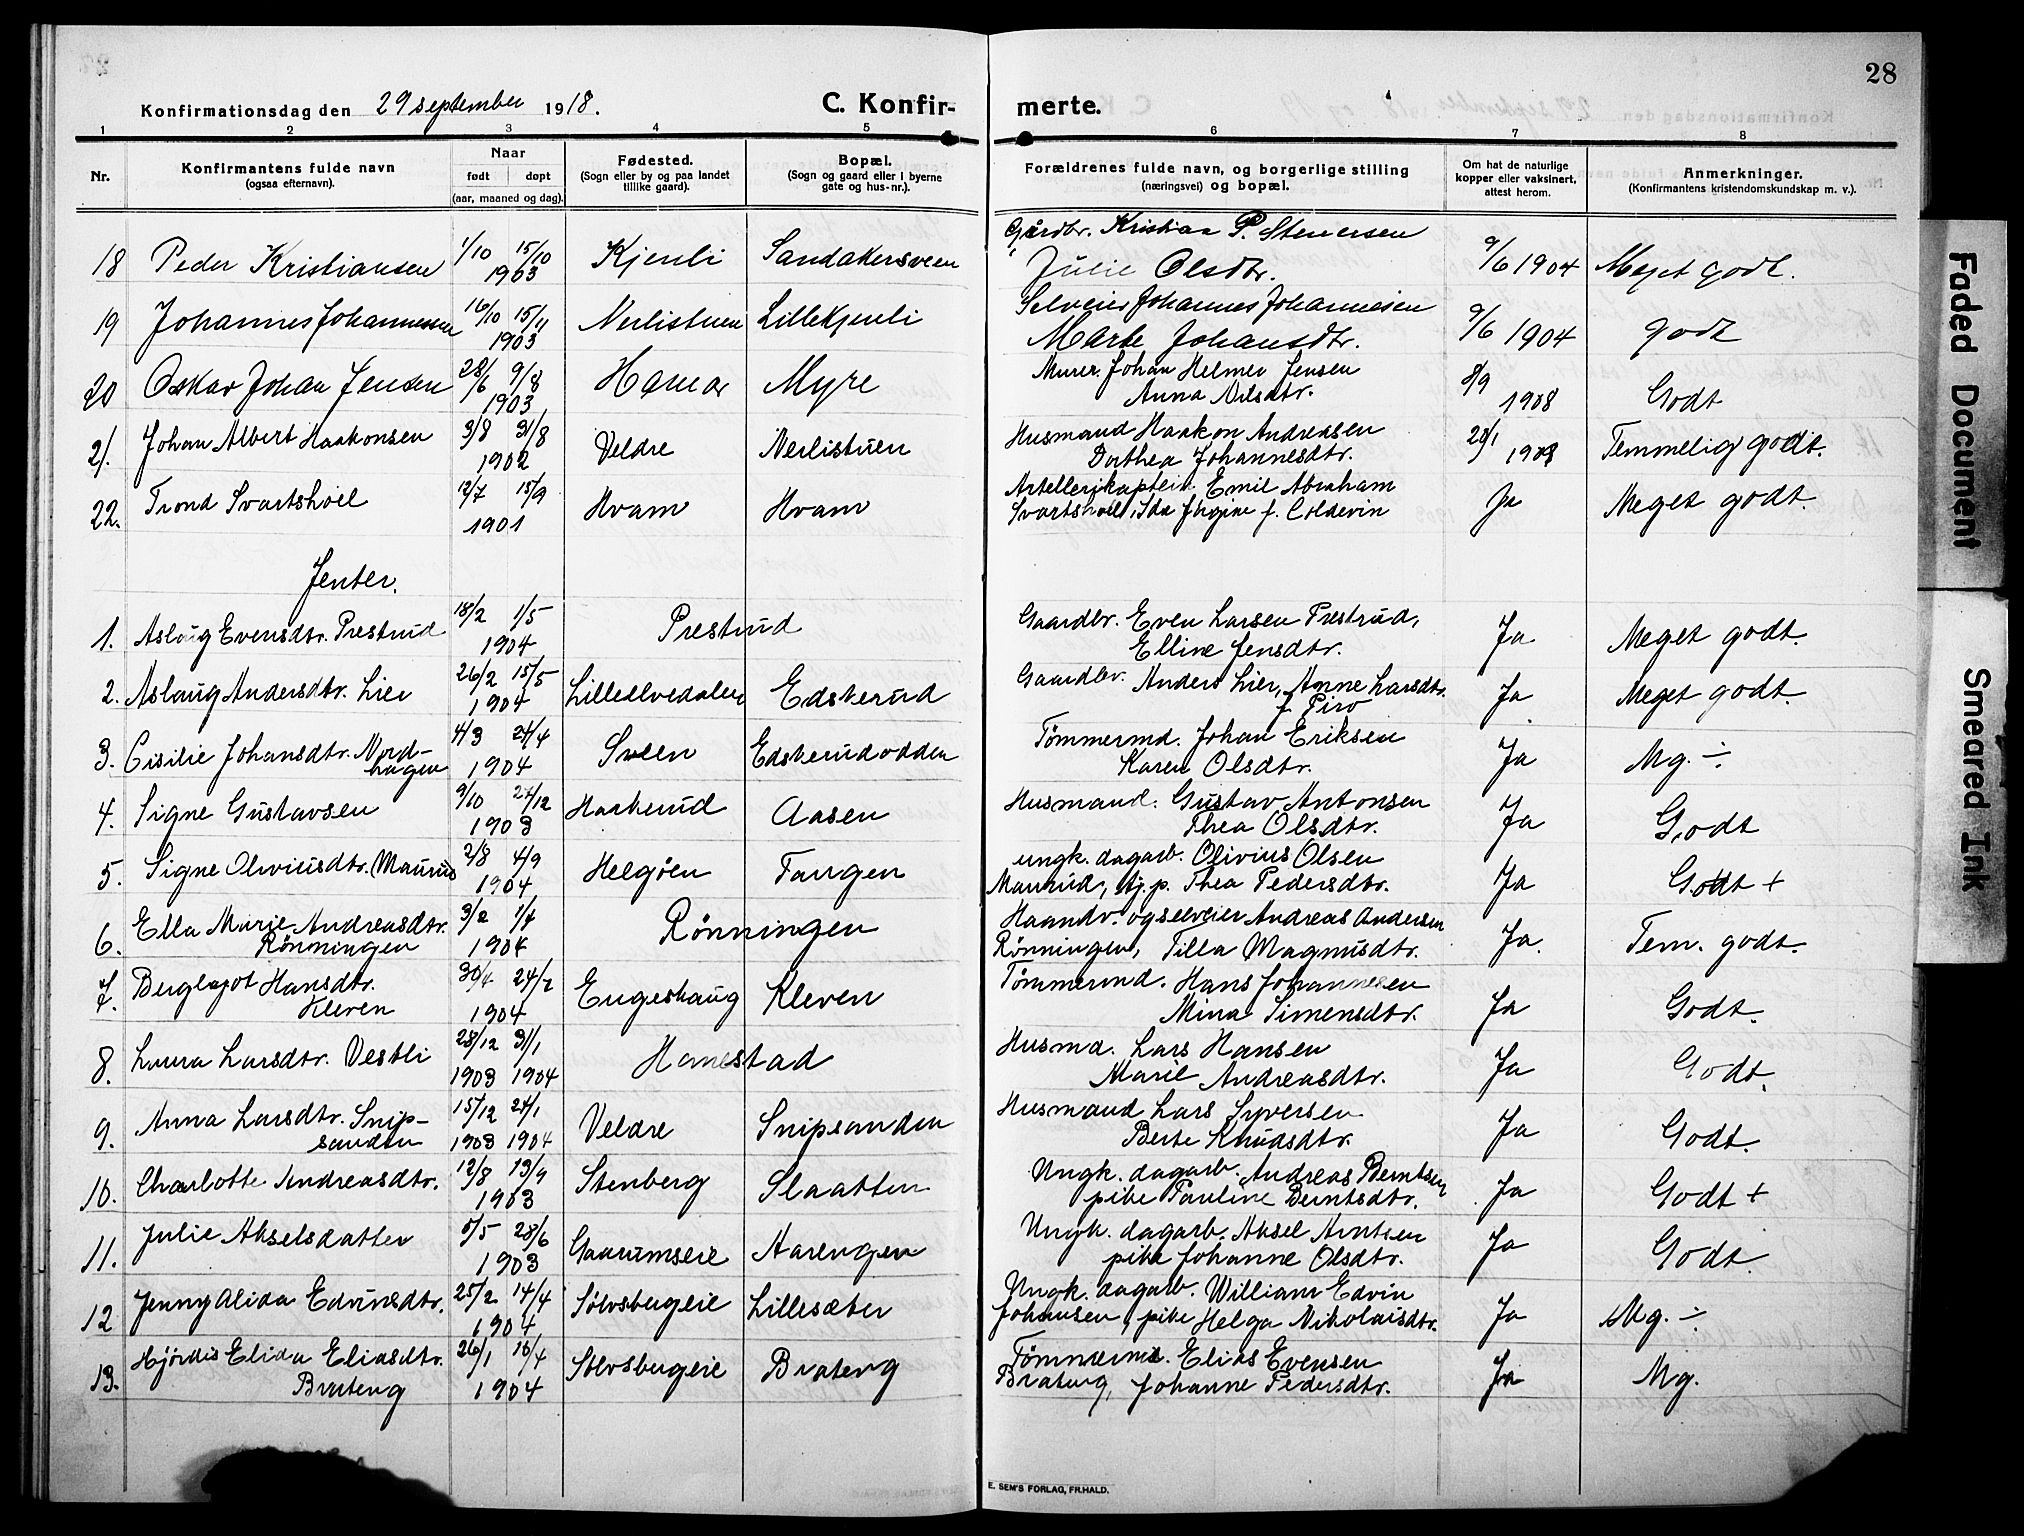 28
Konfirmationsdag den 29 september 1918.
C. Konfir-
merte.
1 2 3 4 5 6 7 8
Nr.
Konfirmantens fulde navn
(ogsaa efternavn).
Naar
født døpt
(aar, maaned og dag).
Fødested.
(Sogn eller by og paa landet
tillike gaard).
Bopæl.
(Sogn og gaard eller i byerne
gate og hus-nr.).
Forældrenes fulde navn, og borgerlige stilling
(næringsvei) og bopæl.
Om hat de naturlige
kopper eller vaksinert,
attest herom.
Anmerkninger.
(Konfirmantens kristendomskundskap m. v.).
Gårdbr. Kristian P. Stenersen
18 Peder Kristiansen 1/10 15/10 Kjenli Sandakersveen Julie Olsdtr. 9/6 1904 Meget godt.
1903
Selveier Johannes Johannesen
19 Johannes Johannessen 16/10 15/11 Nerlistuen Lillekjenli Marte Johansdtr. 9/6 1904 godt
1903
20 Oskar Johan Jensen 28/6 9/8 Hamar Myre Murer. Johan Helmer Jensen 8/9
1903 Anna Nilsdtr. 1908 Godt
21. Johan Albert Haakonsen 3/8 31/8 Veldre Nerlistuen Husmand Haakon Andreasen
1902 Dorthea Johannesdtr. Temmelig godt.
22. Trond Svartshoel 12/7 15/9 Hvam Hvam Artellerikaptein. Emil Abraham Ja Meget godt.
1901 Svartshoel, Ida f. Coldevin
Jenter.
1. Aslaug Evensdtr. Prestrud 18/2 1/5 Prestrud Gaardbr. Even Larsen Prestrud, Ja Meget godt.
1904 Elline Jensdtr.
2. Aslaug Andersdtr. Lier 26/2 15/5 Lilleelvedalen Edskerud Gaardbr. Anders Lier, Anne Larsdtr. Ja Meget godt.
1904 f. Piro
3. Cisilie Johansdtr. Nord- 4/3 24/4 Sveen Edskerudodden Tømmermd. Johan Eriksen Ja Mg. ÷
hagen 1904 Karen Olsdtr.
4. Signe Gustavsen 9/10 27/12 Haakerud Aasen Husmand. Gustav Antonsen Ja Godt
1903 Thea Olsdtr.
5. Signe Oliviusdtr. (Maurud 2/8 4/9 Helgøen Tangen ungk. dagarb. Olivius Olsen Ja Godt +
1904 Maurud, tj.p. Thea Pedersdtr.
6. Ella Marie Andreasdtr. 3/2 1/4 Rønningen Haandv. og selveier Andreas Andersen Ja. Tem. godt.
Rønningen 1904 Rønningen, Tilla Magnusdtr.
7. Bergljot Hansdtr. 30/4 24/7 Engeshaug Kleven Tømmermd. Hans Johannesen Ja Godt.
Kleven 1904 Mina Simensdtr.
8. Laura Larsdtr. Vestli 28/12 31/1 Hanestad Husmd. Lars Hansen Ja Godt.
1903 1904 Marie Andreasdtr.
9. Anna Larsdtr. Snip- 15/12 24/1 Veldre Snipsanden Husmand Lars Syversen Ja Godt.
sanden 1903 1904 Berte Knudsdtr.
10. Charlotte Andreasdtr. 12/8 13/9 Stenberg Slaatten Ungk. dagarb. Andreas Berntsen Ja Godt +
1903 pike Pauline Berntsdtr.
11. Julie Akselsdatter 5/5 28/6 Gaarumseie Aarengen Ungk. dagarb. Aksel Arntsen Ja Godt.
1903 pike Johanne Olsdtr.
12 Jenny Alida Edvinsdtr. 25/2 14/4 Sølvsbergeie Lillesæter Ungk. dagarb. William Edvin Ja Mg. ÷
1904 Johansen, pike Helga Nikolaisdtr.
13. Hjørdis Elida Eliasdtr. 26/1 10/4 Sølvsbergeie Brateng Tømmermd. Elias Evensen Ja Mg.
Brateng 1904 Brateng, Johanne Pedersdtr.
E. SEM'S FORLAG, FR.HALD.
Faded Document
Smeared Ink